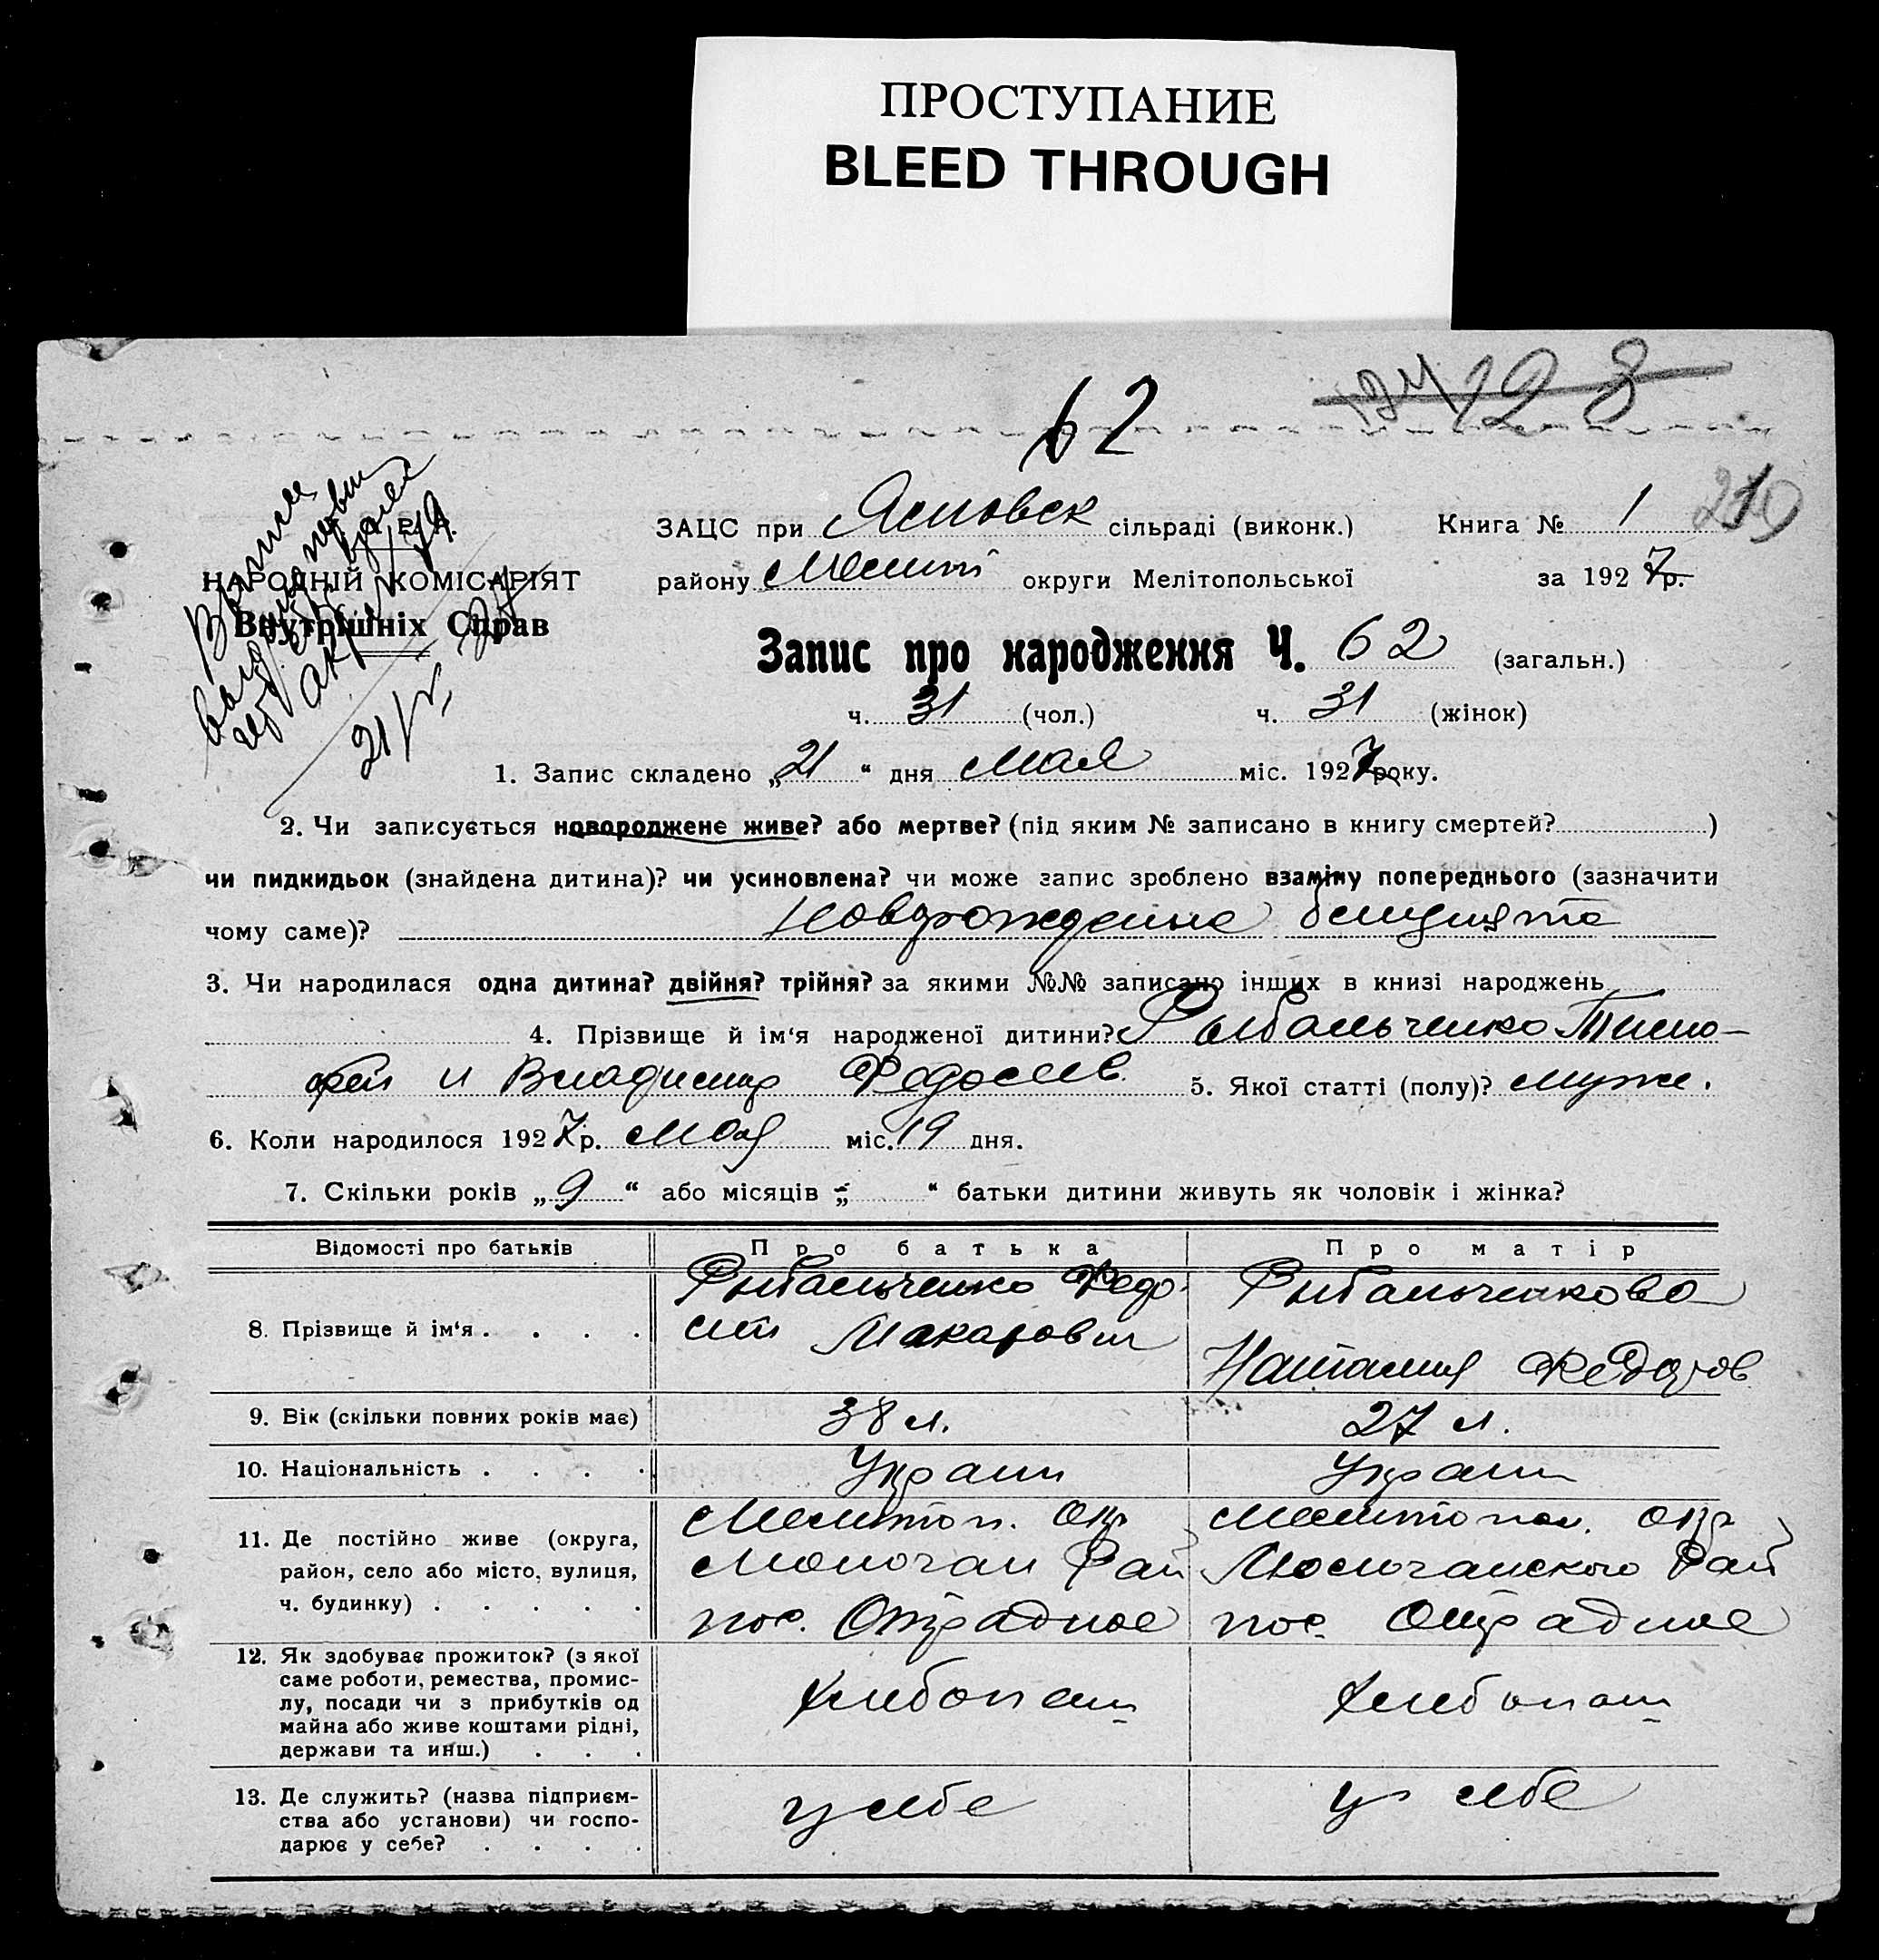 ПРОСТУПАНИЕ
BLEED THROUGH
62
128
НАРОДНІЙ КОМІСАРІЯТ
Внутрішніх Справ
ЗАЦС при Ясновск сільраді (виконк.) Книга № 1
району Мелит округи Мелітопольської за 1927 р.
Запис про народження Ч. 62 (загальн.)
ч. 31 (чол.) ч. 31 (жінок)
1. Запис складено „21“ дня Мая міс. 1927 року.
2. Чи записується новороджене живе? або мертве? (під яким № записано в книгу смертей? )
чи пидкидьок (знайдена дитина)? чи усиновлена? чи може запис зроблено взаміну попереднього (зазначити
чому саме)?
3. Чи народилася одна дитина? двійня? трійня? за якими №№ записано інших в книзі народжень
4. Прізвище й ім‘я народженої дитини? Рыбальченко Тимо-
фей и Владимир Федосеев. 5. Якої статті (полу)? муже.
6. Коли народилося 1927 р. Мая міс. 19 дня.
7. Скільки років „9“ або місяців „-“ батьки дитини живуть як чоловік і жінка?
Відомості про батьків Про батька Про матір
8. Прізвище й ім‘я . . . . Рыбальченко Федо- Рыбальченкова
сий Макарович
Наталия Федоров
9. Вік (скільки повних років має) 38 л. 27 л.
10. Національність . . . . Украин Украин
11. Де постійно живе (округа, Мелитоп. Окр Мелитопол. Окр
район, село або місто, вулиця, Молочан Рай Молочанского Рай
ч. будинку) . . . . . пос. Отрадное пос. Отрадное
12. Як здобуває прожиток? (з якої
саме роботи, ремества, промис-
лу, посади чи з прибутків од хлебопаш хлебопаш
майна або живе коштами рідні,
держави та инш.) . . .
13. Де служить? (назва підприєм- у себе у себе
ства або установи) чи госпо-
дарює у себе? . . . .